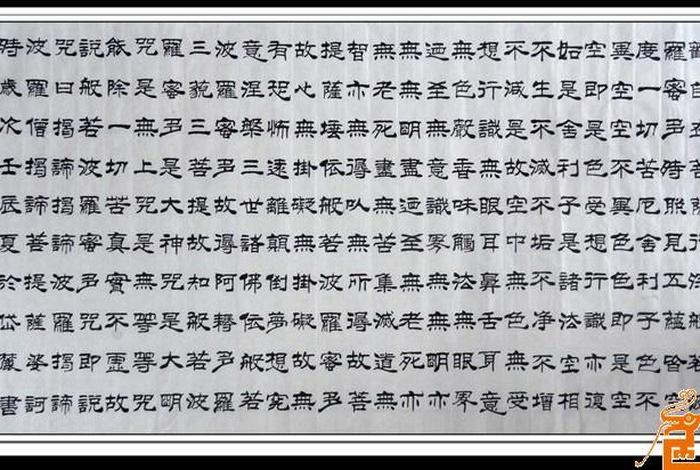 羅蜜多時照見五蘊皆空
度一切苦厄舍利子色不
異空空不異色色即是空
空即是色受想行識亦復
如是舍利子是諸法空相
不生不滅不垢不净不增
不減是故空中無色無受
想行識無眼耳鼻舌身意
無色聲香味觸法無眼界
迺至無意識界無無明亦
無無明盡迺至無老死亦
無老死盡無苦集滅道無
智亦無得以無所得故菩
提薩埵依般若波羅蜜多
故心無掛礙無掛礙故無
有恐怖遠離顛倒夢想究
竟涅槃三世諸佛依般若
波羅蜜多故得阿耨多羅
三藐三菩提故知般若波
羅蜜多是大神咒是大明
咒是無上咒是無等等咒
能除一切苦真實不虛故
說般若波羅蜜多咒即說
咒曰揭諦揭諦波羅揭諦
波羅僧揭諦菩提薩婆訶
時歲次壬辰夏於岱麓書